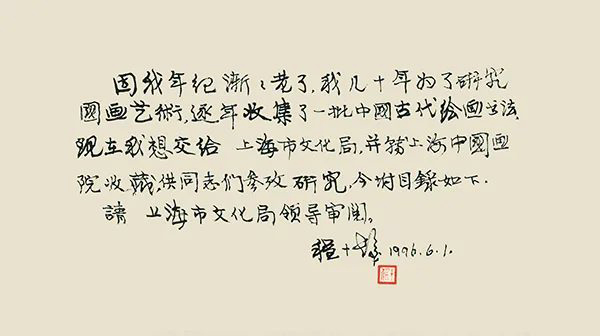 因我年纪渐々老了,我几十年为了研究
國画艺術,逐年收集了一批中國古代绘画书法
现在我想交给 上海市文化局,并转上海中國画
院收藏供同志们参攷研究,今附目録如下.
請 上海市文化局领导审阅。
程十髪 1996.6.1.